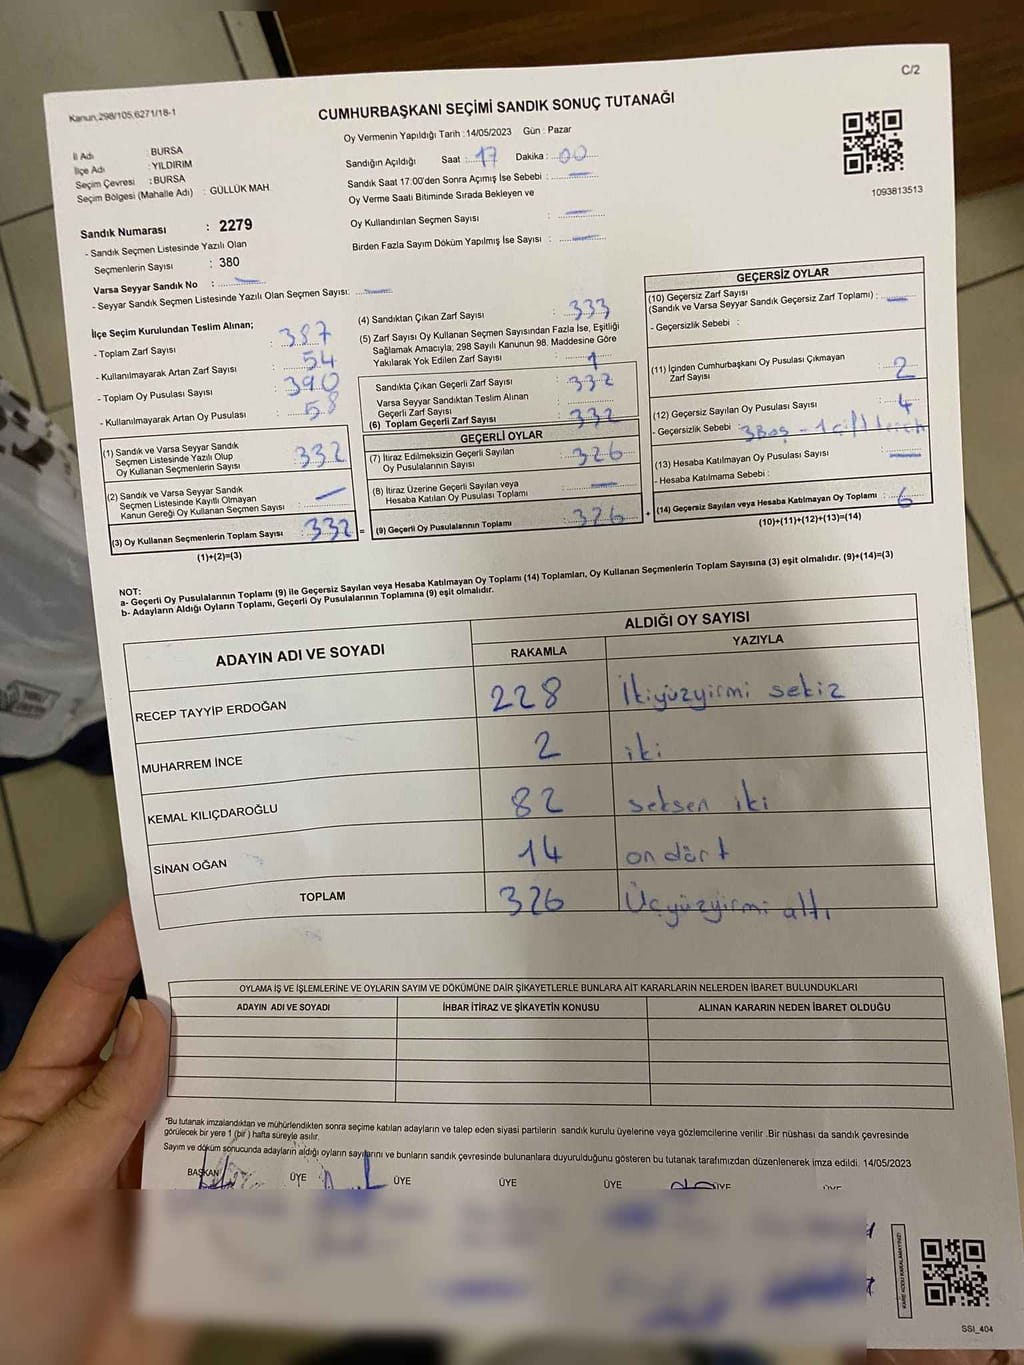 C/2
Kanun,298/105,6271/18-1
CUMHURBAŞKANI SEÇİMİ SANDIK SONUÇ TUTANAĞI
Oy Vermenin Yapıldığı Tarih : 14/05/2023 Gün : Pazar
İl Adı : BURSA
İlçe Adı : YILDIRIM
Seçim Çevresi : BURSA
Seçim Bölgesi (Mahalle Adı) : GÜLLÜK MAH.
Sandığın Açıldığı Saat : 17 Dakika : 00
Sandık Saat 17:00'den Sonra Açımış İse Sebebi : —
Oy Verme Saati Bitiminde Sırada Bekleyen ve
Oy Kullandırılan Seçmen Sayısı : —
Birden Fazla Sayım Döküm Yapılmış İse Sayısı : —
1093813513
Sandık Numarası : 2279
- Sandık Seçmen Listesinde Yazılı Olan
Seçmenlerin Sayısı : 380
Varsa Seyyar Sandık No : —
- Seyyar Sandık Seçmen Listesinde Yazılı Olan Seçmen Sayısı: —
İlçe Seçim Kurulundan Teslim Alınan;
- Toplam Zarf Sayısı : 387
- Kullanılmayarak Artan Zarf Sayısı : 54
- Toplam Oy Pusulası Sayısı : 390
- Kullanılmayarak Artan Oy Pusulası : 58
(1) Sandık ve Varsa Seyyar Sandık
Seçmen Listesinde Yazılı Olup
Oy Kullanan Seçmenlerin Sayısı : 332
(2) Sandık ve Varsa Seyyar Sandık
Seçmen Listesinde Kayıtlı Olmayan
Kanun Gereği Oy Kullanan Seçmen Sayısı : —
(3) Oy Kullanan Seçmenlerin Toplam Sayısı : 332
(1)+(2)=(3)
(4) Sandıktan Çıkan Zarf Sayısı : 333
(5) Zarf Sayısı Oy Kullanan Seçmen Sayısından Fazla İse, Eşitliği
Sağlamak Amacıyla, 298 Sayılı Kanunun 98. Maddesine Göre
Yakılarak Yok Edilen Zarf Sayısı : 1
Sandıkta Çıkan Geçerli Zarf Sayısı : 332
Varsa Seyyar Sandıktan Teslim Alınan
Geçerli Zarf Sayısı :
(6) Toplam Geçerli Zarf Sayısı : 332
GEÇERLİ OYLAR
(7) İtiraz Edilmeksizin Geçerli Sayılan
Oy Pusulalarının Sayısı : 326
(8) İtiraz Üzerine Geçerli Sayılan veya
Hesaba Katılan Oy Pusulası Toplamı : —
= (9) Geçerli Oy Pusulalarının Toplamı : 326 +
GEÇERSİZ OYLAR
(10) Geçersiz Zarf Sayısı
(Sandık ve Varsa Seyyar Sandık Geçersiz Zarf Toplamı) : —
- Geçersizlik Sebebi :
(11) İçinden Cumhurbaşkanı Oy Pusulası Çıkmayan
Zarf Sayısı : 2
(12) Geçersiz Sayılan Oy Pusulası Sayısı : 4
- Geçersizlik Sebebi : 3 Boş - 1 çift tercih
(13) Hesaba Katılmayan Oy Pusulası Sayısı : —
- Hesaba Katılmama Sebebi :
(14) Geçersiz Sayılan veya Hesaba Katılmayan Oy Toplamı : 6
(10)+(11)+(12)+(13)=(14)
NOT:
a- Geçerli Oy Pusulalarının Toplamı (9) ile Geçersiz Sayılan veya Hesaba Katılmayan Oy Toplamı (14) Toplamları, Oy Kullanan Seçmenlerin Toplam Sayısına (3) eşit olmalıdır. (9)+(14)=(3)
b- Adayların Aldığı Oyların Toplamı, Geçerli Oy Pusulalarının Toplamına (9) eşit olmalıdır.
ADAYIN ADI VE SOYADI ALDIĞI OY SAYISI
RAKAMLA YAZIYLA
RECEP TAYYİP ERDOĞAN 228 İkiyüzyirmi sekiz
MUHARREM İNCE 2 iki
KEMAL KILIÇDAROĞLU 82 seksen iki
SİNAN OĞAN 14 on dört
TOPLAM 326 Üçyüzyirmi altı
OYLAMA İŞ VE İŞLEMLERİNE VE OYLARIN SAYIM VE DÖKÜMÜNE DAİR ŞİKAYETLERLE BUNLARA AİT KARARLARIN NELERDEN İBARET BULUNDUKLARI
ADAYIN ADI VE SOYADI İHBAR İTİRAZ VE ŞİKAYETİN KONUSU ALINAN KARARIN NEDEN İBARET OLDUĞU
*Bu tutanak imzalandıktan ve mühürlendikten sonra seçime katılan adayların ve talep eden siyasi partilerin sandık kurulu üyelerine veya gözlemcilerine verilir .Bir nüshası da sandık çevresinde
görülecek bir yere 1 (bir ) hafta süreyle asılır.
Sayım ve döküm sonucunda adayların aldığı oyların sayılarını ve bunların sandık çevresinde bulunanlara duyurulduğunu gösteren bu tutanak tarafımızdan düzenlenerek imza edildi. 14/05/2023
BAŞKAN ÜYE ÜYE ÜYE ÜYE ÜYE ÜYE
KARE KODU KARALAMAYINIZ!
SSI_404